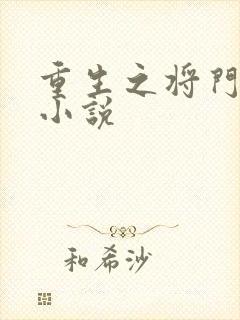 重生之将門
小説
和希沙